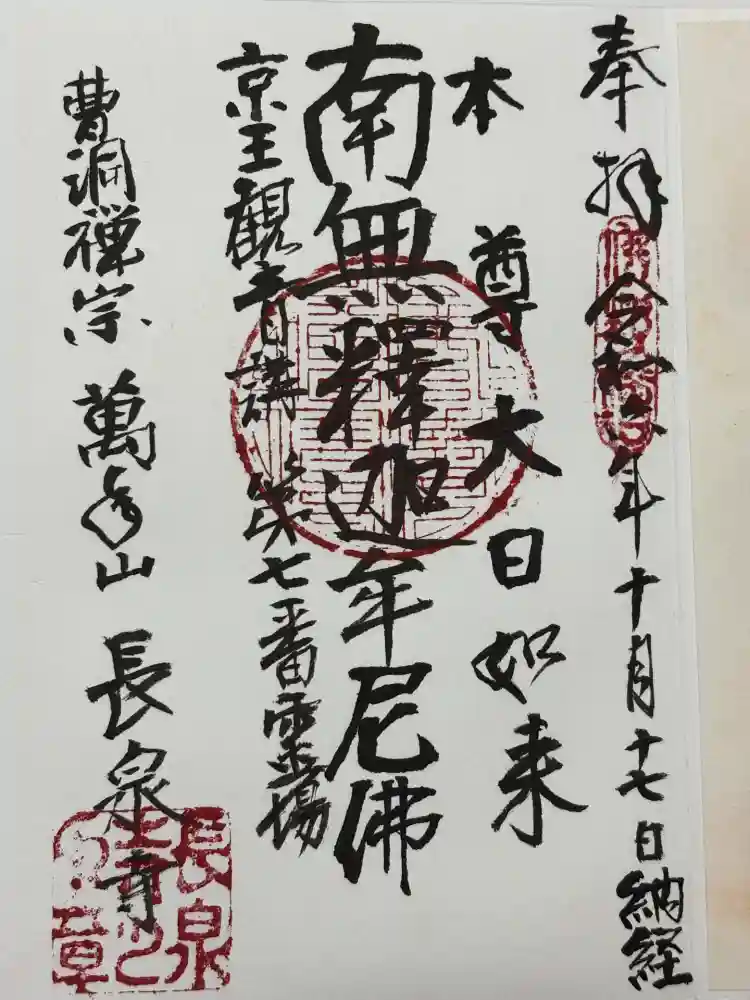 奉拝 令和 年十月十七日納経
本尊大日如来
南無釋迦牟尼佛
京王観音講 第七番霊場
曹洞禅宗 萬年山 長泉寺
長泉
寺之
印章